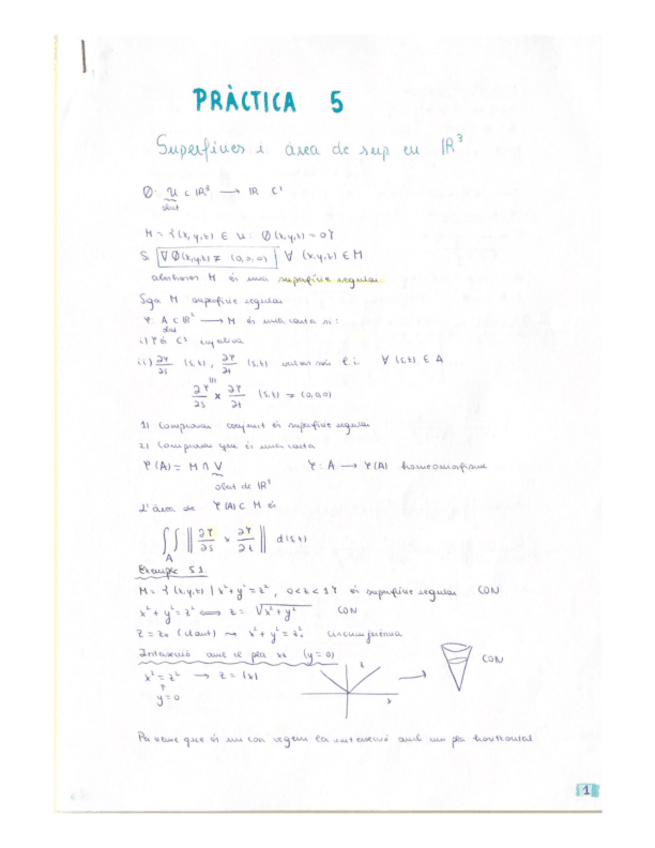 PRÀCTICA 5
Superfícies i área de sup en IR³
∅: U ⊂ IR³ → IR C¹
obert
M = {(x,y,z) ∈ U : ∅(x,y,z) = 0}
Si ∇∅(x,y,z) ≠ (0,0,0) ∀ (x,y,z) ∈ M
aleshores M és una superfície regular
Siga M superfície regular
Ψ: A ⊂ IR² → M és una carta si:
obert
i) Ψ és C¹ injectiva
ii) ∂Ψ/∂s (s,t), ∂Ψ/∂t (s,t) són l.i. ∀ (s,t) ∈ A
∂Ψ/∂s × ∂Ψ/∂t (s,t) ≠ (0,0,0)
1) Comprovar conjunt és superfície regular
2) Comprovar que és una carta
Ψ(A) = M ∩ V Ψ: A → Ψ(A) homeomorfisme
obert de IR³
L'área de Ψ(A) ⊂ M és
∬_A ‖ ∂Ψ/∂s × ∂Ψ/∂t ‖ d(s,t)
Exemple 5.1.
M = {(x,y,z) | x²+y²=z², 0<z<1} és superfície regular CON
x²+y²=z² ⟺ z = √x²+y² CON
z = z₀ (clant) ⇝ x²+y²=z₀² circumferència
Intersecció amb el pla xz (y=0)
x² = z² → z = |x|
y=0
z
x
CON
Per veure que és un con vegem la intersecció amb un pla horitzontal
1